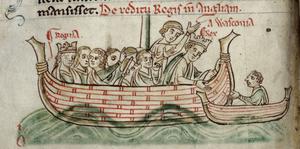 mansisset. De reditu Regis in Angliam.
a Wasconia
Regina
Rex